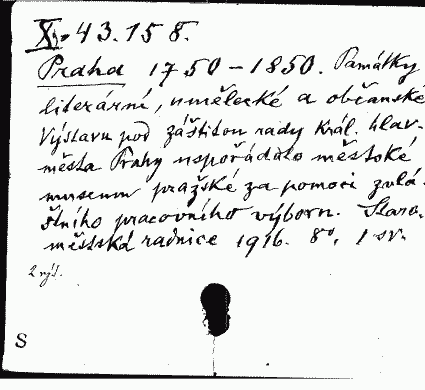 XI. 43.158.
Praha 1750-1850. Památky
literární, umělecké a občanské
Výstavu pod záštitou rady král. hlav.
města Prahy uspořádalo městské
museum pražské za pomoci zvlá-
štního pracovního výborn. Staro-
městská radnice 1916. 8°. 1 sv.
2 výt.
S